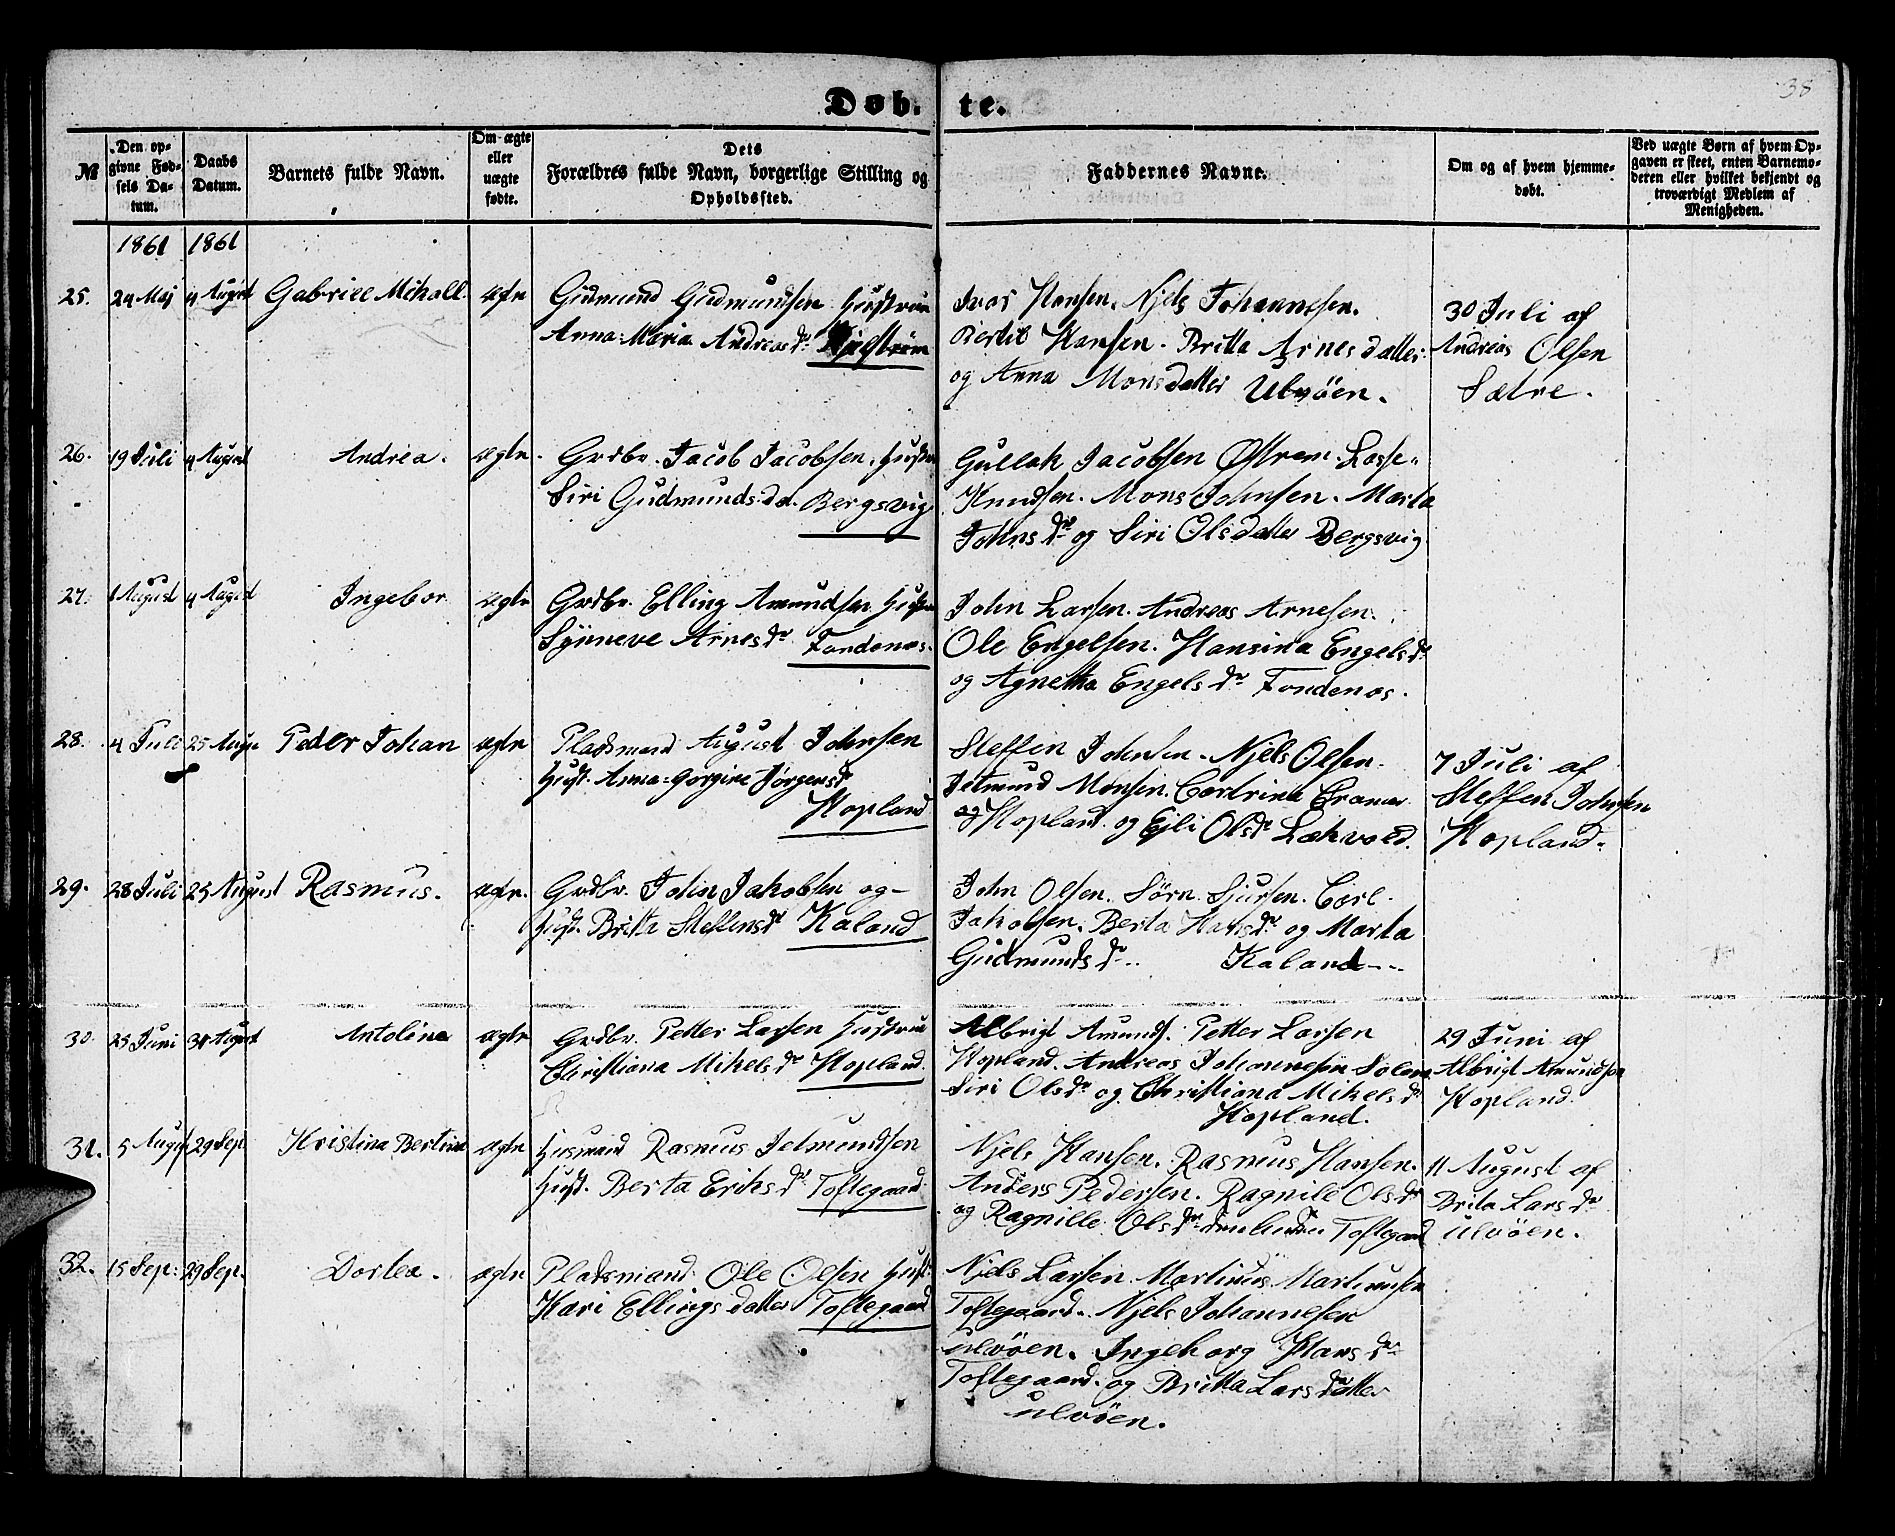 38
Døb- te.
№
Den opgivne Fødsels Datum.
Daabs Datum.
Barnets fulde Navn.
Om ægte eller uægte fødte.
Dets Forældres fulde Navn, borgerlige Stilling og Opholdssted.
Faddernes Navne.
Om og af hvem hjemmedøbt.
Ved uægte Børn af hvem Opgaven er skeet, enten Barnemoderen eller hvilket bekjendt og troværdigt Medlem af Menigheden.
1861 1861
25. 24 Maj 4 August Gabriel Mikall ægte Gudmund Gudmundsen Hustrue
Anna Maria Andreasdr
Ivar Hansen. Njels Johannesen.
Bertil Hansen. Britta Arnesdatter.
og Anna Monsdatter Ulvöen.
30 Juli af
Andreas Olsen
Sætre.
26. 19 Juli 4 August Andrea. ægte. Grdbr. Jacob Jacobsen. Hustru
Siri Gudmunds.da. Bergsvig
Gullak Jacobsen Østrem. Lasse
Knudsen. Mons Johnsen. Marta
Johnsdr og Siri Olsdatter Bergsvig
27. 1 August 4 August Ingebor ægte Grdbr. Elling Amundsen Hustru
Synneve Arnesdr Fondenæs.
John Larsen. Andreas Arnesen.
Ole Engelsen. Hansina Engelsdr
og Agnetha Engelsdr Fondenæs.
28. 4 Juli 25 Augu Peder Johan ægte Pladsmand August Johnsen
Hust. Anna Gorgine Jørgensdr
Hopland
Steffen Johnsen. Njels Olsen.
Jetmund Monsen. Catrina Cramer
og Hopland og Ejli Olsdr Lækvold.
7 Juli af
Steffen Johnsen
Hopland.
29. 28 Juli 25 August Rasmus. ægte. Grdbr. John Jakobsen og
Hust. Britta Steffensdr Kaland
John Olsen. Sørn Sjursen. Carl
Jakobsen. Berta Hansdr og Marta
Gudmundsdr Kaland
30. 25 Juni 31 August Antoline ægte Grdbr. Petter Larsen Hustrue
Christiana Mikelsdr Hopland.
Albrigt Amunds. Petter Larsen
Hopland. Andreas Johannesen
Siri Olsdr og Christiana Mikelsdr
Hopland.
29 Juni af
Albrigt Amundsen
Hopland.
31. 5 August 29 Sep. Kristina Bertine ægte Husmand Rasmus Jetmundsen
Hust. Berta Eriksdr Toftegaard
Njels Hansen. Rasmus Hansen.
Anders Pedersen. Ragnile Olsdr
og Ragnille Olsdr Toftegaard
11 August af
Brita Larsdr
Ulvöen.
32. 15 Sep: 29 Sep. Dortea. ægte Pladsmand Ole Olsen Hust.
Kari Ellingsdatter Toftegaard
Njels Larsen. Martinus Martinusen
Toftegaard. Njels Johannesen
Ulvöen. Ingeborg Hansdr
Toftegaard. og Britta Larsdatter
Ulvöen.